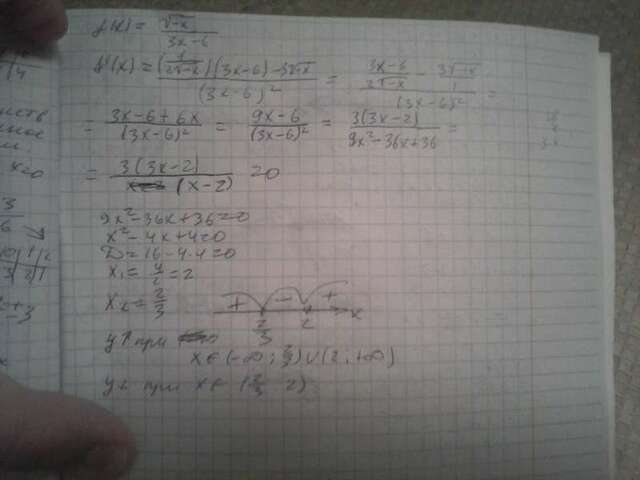 f(x) = √-x / 3x-6
f'(x) = (1/2√-x)(3x-6) - 3√-x / (3x-6)² = 3x-6/2√-x - 3√-x/1 / (3x-6)² =
= 3x-6+6x / (3x-6)² = 9x-6 / (3x-6)² = 3(3x-2) / 9x²-36x+36 =
= 3(3x-2) / (x-2) =0
9x²-36x+36=0
x²-4x+4=0
D=16-4·4=0
x₁= 4/2 =2
x₂= 2/3
+ - +
2/3 2 x
y↑ при
x∈(-∞; 2/3)∪(2; +∞)
y↓ при x∈(2/3 2)